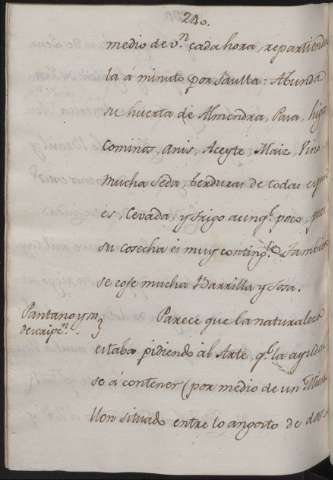 240.
medio de Rn. cada hora, repartiendo
la á minuto por Saulta: Abunda
su huerta de Almendra, Pasa, higo
Cominos, Anis, Aceyte, Maiz, Vino
mucha Seda, berduras de todas espe
es, Cevada, y trigo aunqe. poco, pues
su cosecha es muy contingte. Tambien
se coje mucha Barrilla y Sosa.
Pantano y su
descripn.
Parece que la naturaleza
estaba pidiendo al Arte, qe. la ayudase
se á contener (por medio de un Mura
llon situado entre lo angosto de dos